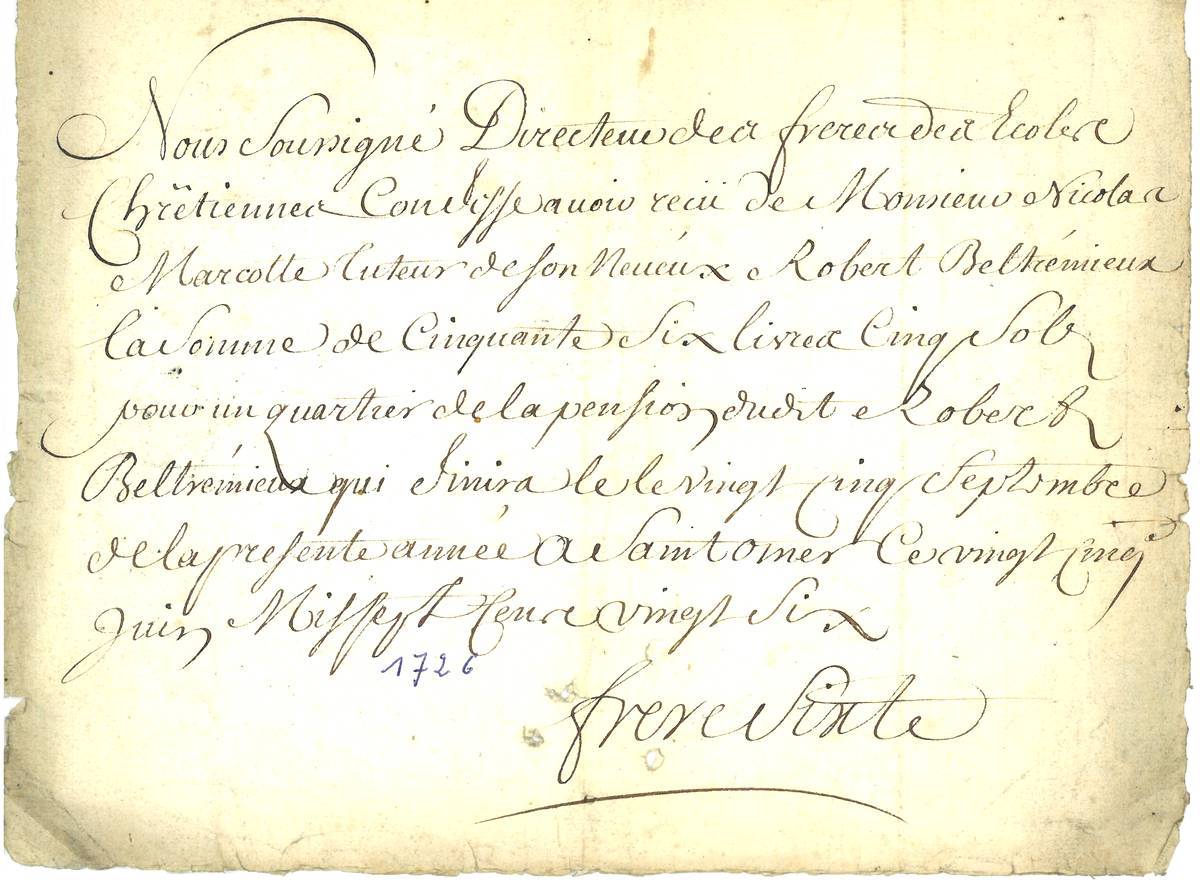 Nous Soussigné Directeur des freres des Ecoles
Chrêtiennes Confesse avoir recü de Monsieur Nicolas
Marcotte tuteur de son Neveux Robert Beltrémieux
la Somme de Cinquante Six livres Cinq Sols
pour un quartier de la pension dudit Robert
Beltrémieux qui finira le le vingt cinq Septembre
de la presente année a Saint omer Ce vingt cinq
Juin Mil sept Cens vingt Six
1726
frere Sixte